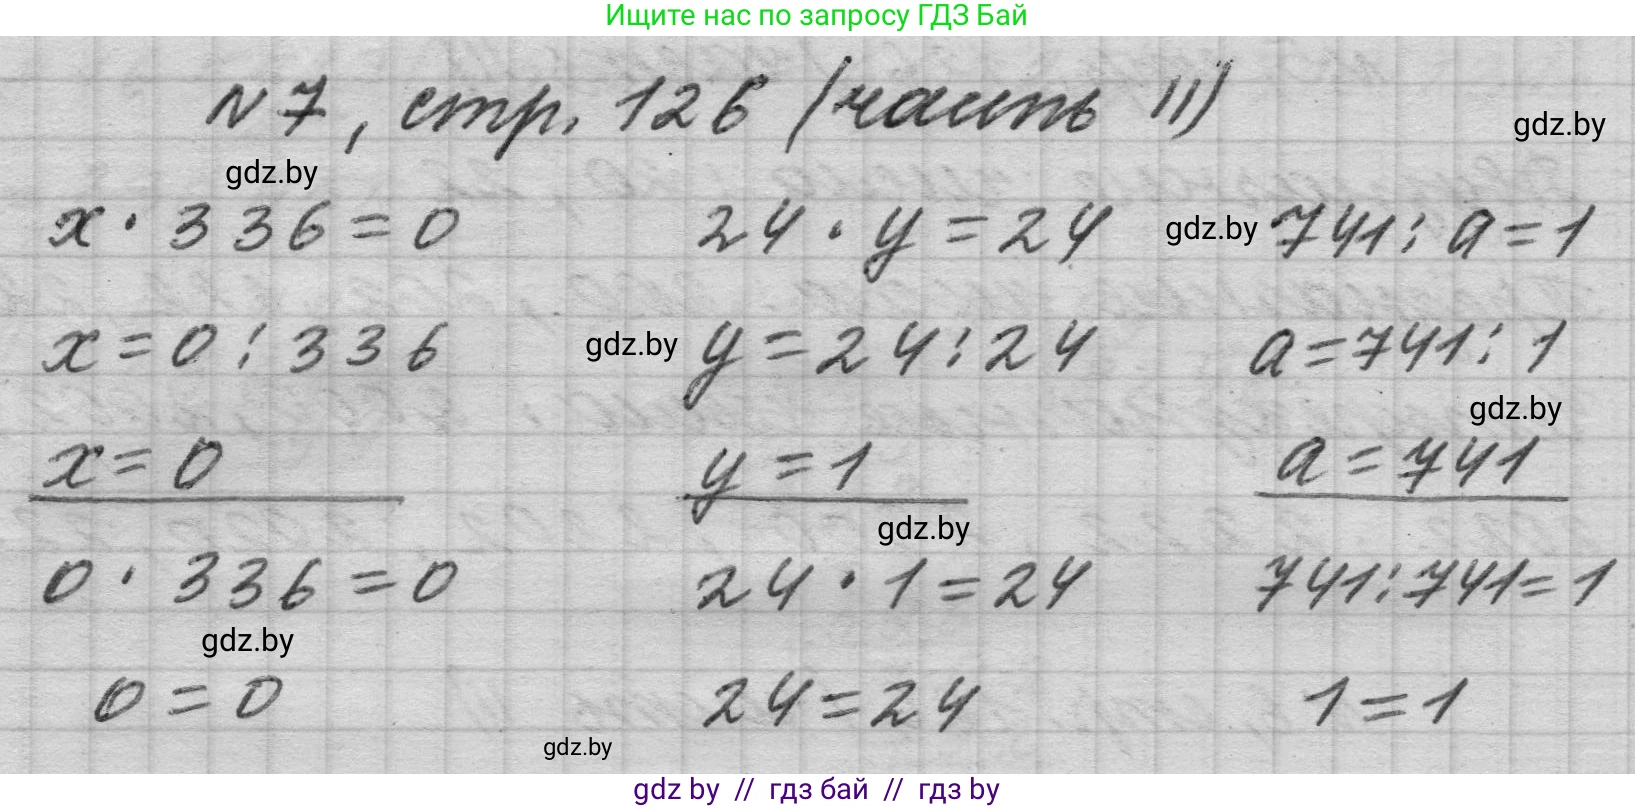 Ищите нас по запросу ГДЗ Бай
N7, стр. 126 (часть II)
gdz.by
gdz.by
x · 336 = 0    24 · y = 24    gdz.by 741 : a = 1
x = 0 : 336    gdz.by y = 24 : 24    a = 741 : 1
gdz.by
x = 0    y = 1    a = 741
gdz.by
0 · 336 = 0    24 · 1 = 24    741 : 741 = 1
gdz.by
0 = 0    24 = 24    1 = 1
gdz.by
gdz by // гдз бай // гдз by